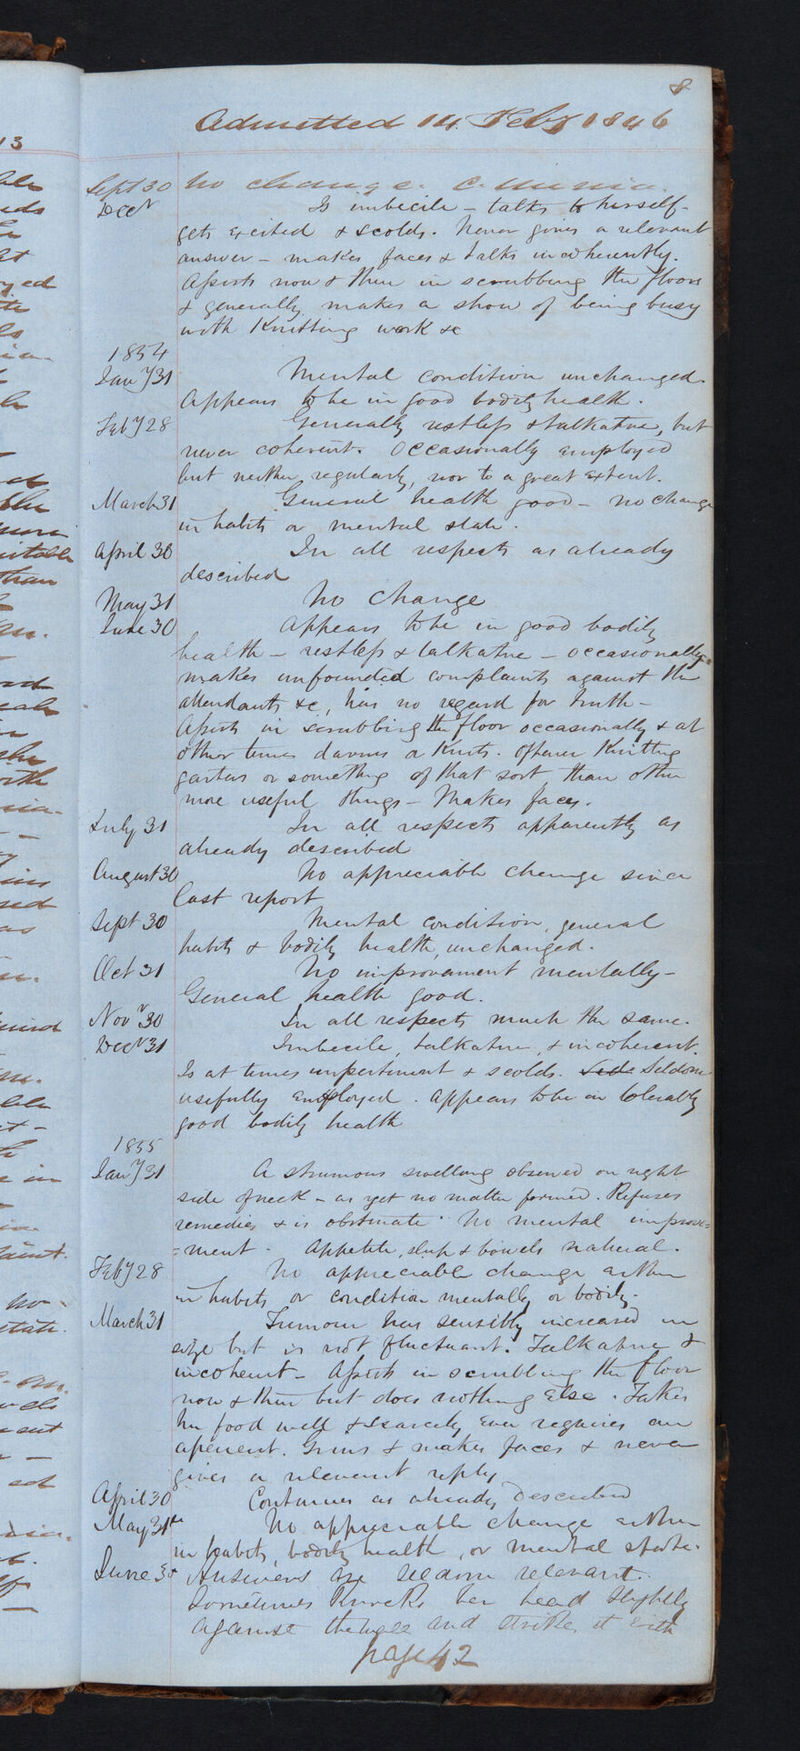 8
Admitted 14 Feby 1846
Sept 30 No change.
Decr Is imbecile - talks to herself-
gets excited & scolds. Never gives a relevant
answer - makes faces & talks incoherently.
Assists now & then in scrubbing the floors
& generally makes a show of being busy
with Knitting work &c
1854
Jany 31 Mental condition unchanged.
Appears to be in good bodily health.
Feby 28 Generally restless & talkative, but
never coherent. Occasionally employed
but neither regularly, nor to a great extent.
March 31 General health good - no change
in habits or mental state.
April 30 In all respects as already
described
May 31 No change
June 30 Appears to be in good bodily
health - restless & talkative - occasionally
makes unfounded complaints against the
attendants &c, has no regard for truth -
Assists in scrubbing the floor occasionally & at
other times darns or Knits. oftener Knitting
garters or something of that sort than other
more useful things - Makes faces.
July 31 In all respects apparently as
already described
August 30 No appreciable change since
last report
Sept 30 Mental condition, general
habits & bodily health, unchanged.
Oct 31 No improvement mentally -
General health good.
Novr 30 In all respects much the same.
Decr 31 Imbecile, talkative, & incoherent.
Is at times impertinent & scolds. Seldom
usefully employed. Appears to be in tolerably
good bodily health
1855
Jany 31 A strumous swelling observed on right
side of neck - as yet no matter formed. Refuses
remedies & is obstinate. No mental improve=
=ment. Appetite, sleep & bowels natural.
Feby 28 No appreciable change either
in habits or condition mentally or bodily.
March 31 Tumour has sensibly increased in
size but is not fluctuant. Talkative &
incoherent - Assists in scrubbing the floor
now & then but does nothing else. Takes
her food well & scarcely ever requires an
aperient. Grins & makes faces & never
gives a relevant reply
April 30 Continues as already described
May 31st No appreciable change either
in habits, bodily health, or mental state.
June 30 Answers are seldom relevant.
Sometimes Knocks her head slightly
against the wall and strikes it with
page 42